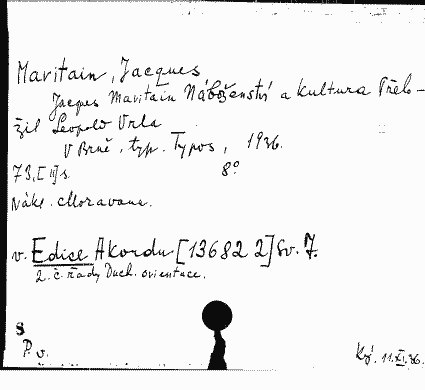 Maritain, Jacques
Jacques Maritain Náboženství a kultura Přelo-
žil Leopold Vrla
V Brně, typ. Typos, 1936.
73,[1] s. 8°
Nákl. Moravana.
v. Edice Akordu [13682 2] Sv. 7.
2. č. řady Duch. orientace.
S
P. v.
11.XI.36.